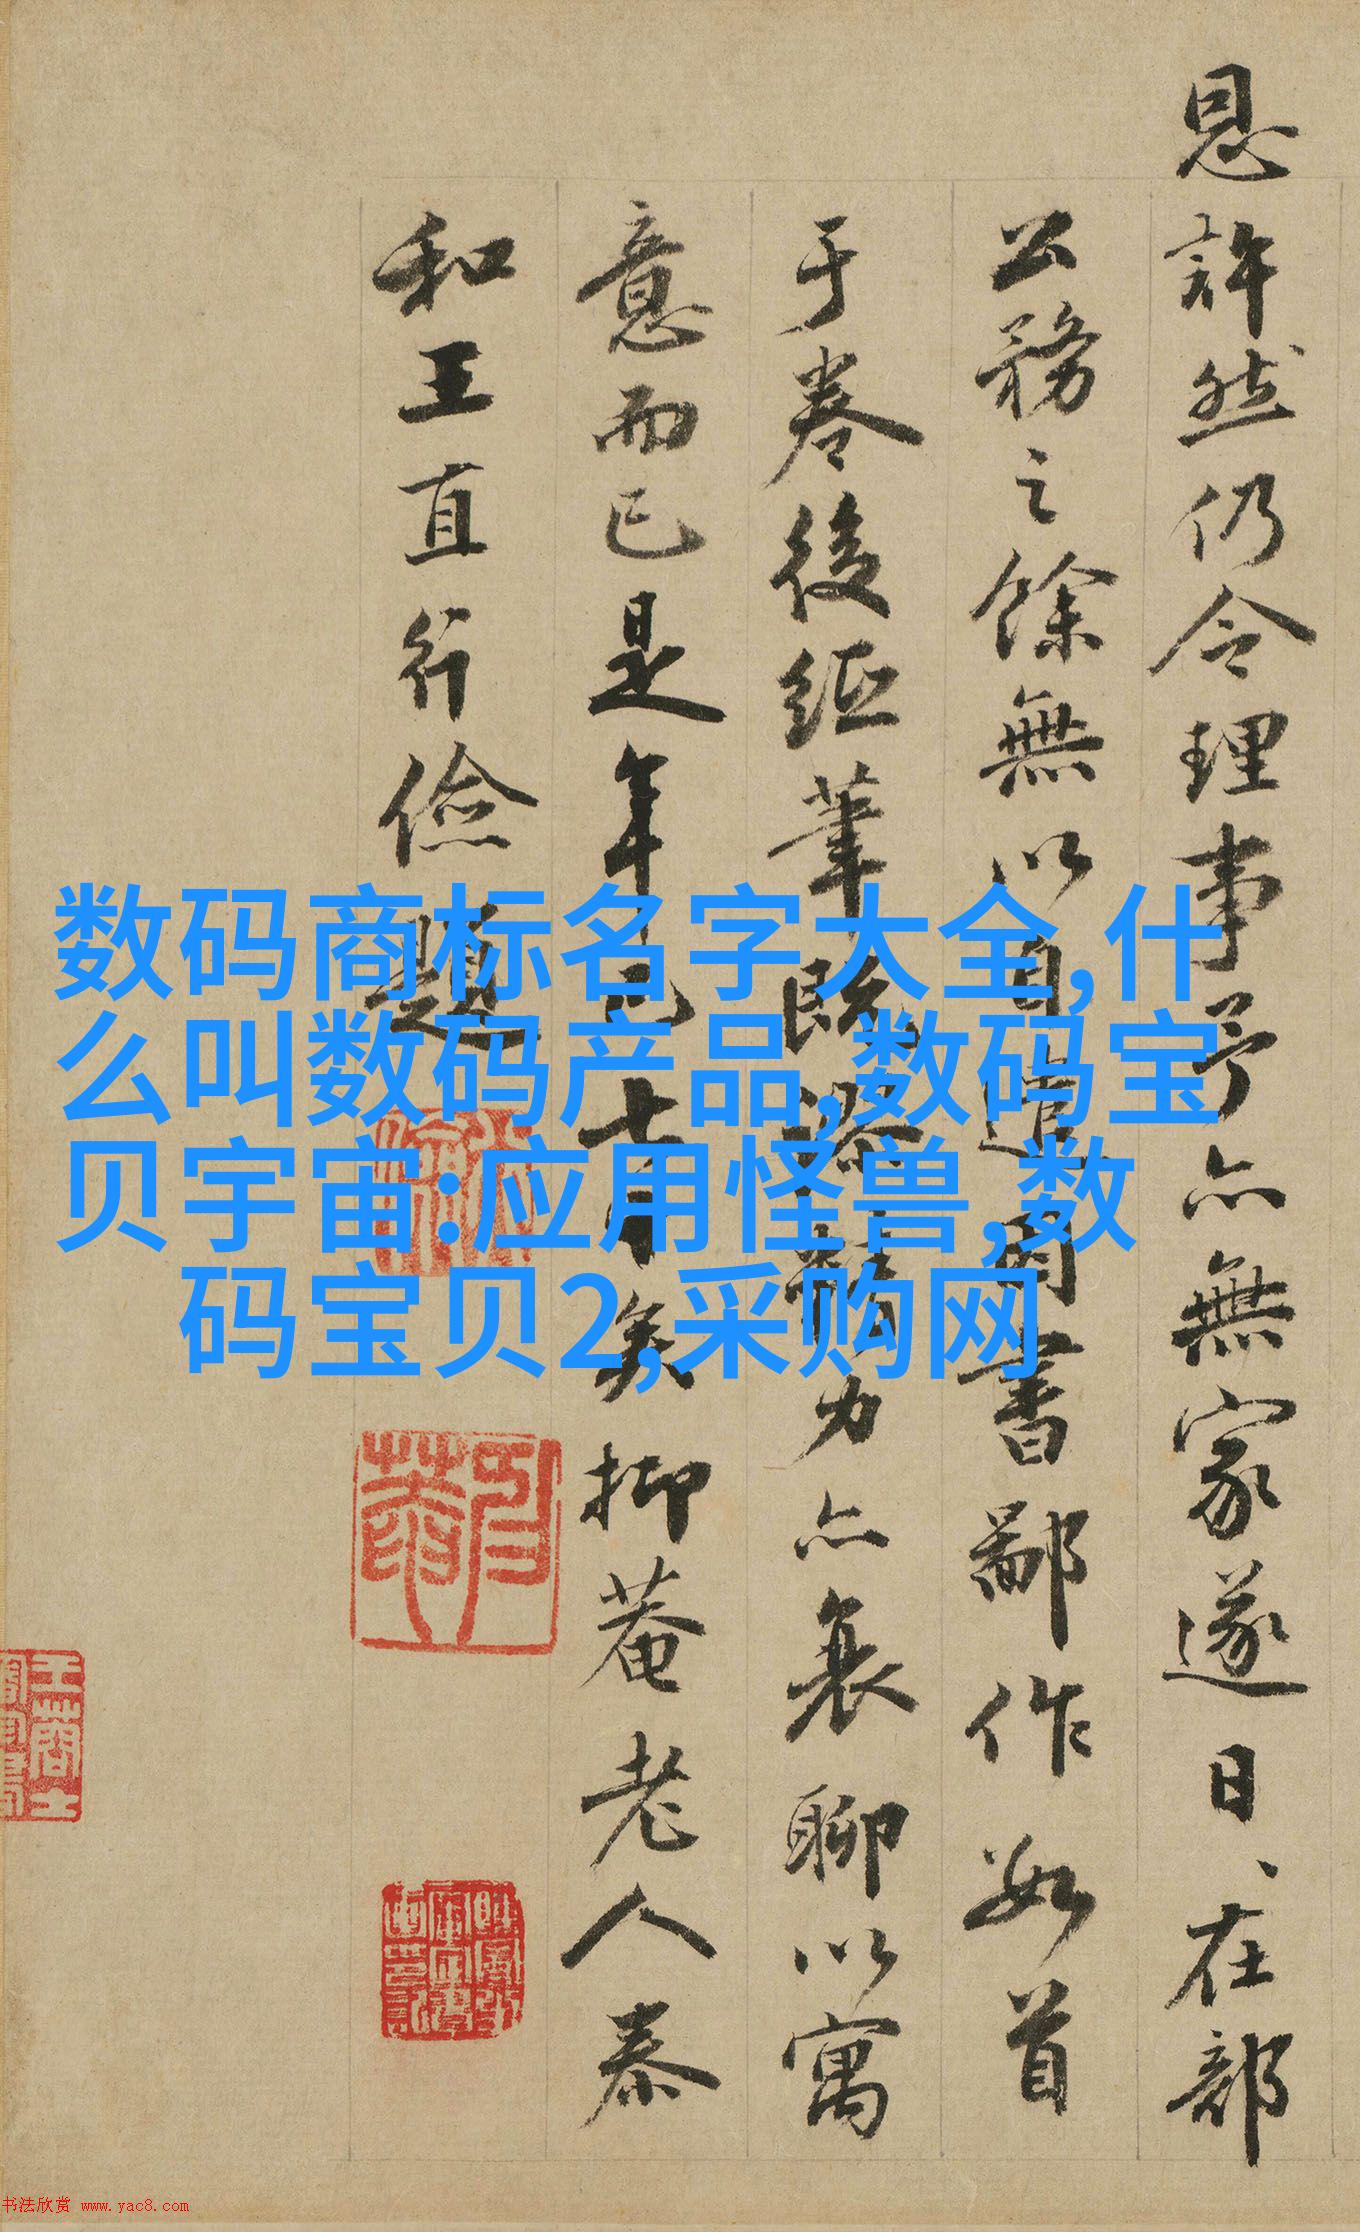 恩許然仍令理事予亦無家遂日、在部
公務之餘無以自遣因書鄙作數首
于卷後紙筆既澀精力亦衰聊以寓
意而已是年已七十矣抑菴老人泰
和王直行儉題
数码商标名字大全,什
么叫数码产品,数码宝
贝宇宙:应用怪兽,数
码宝贝2,采购网
书法欣赏 www.yac8.com